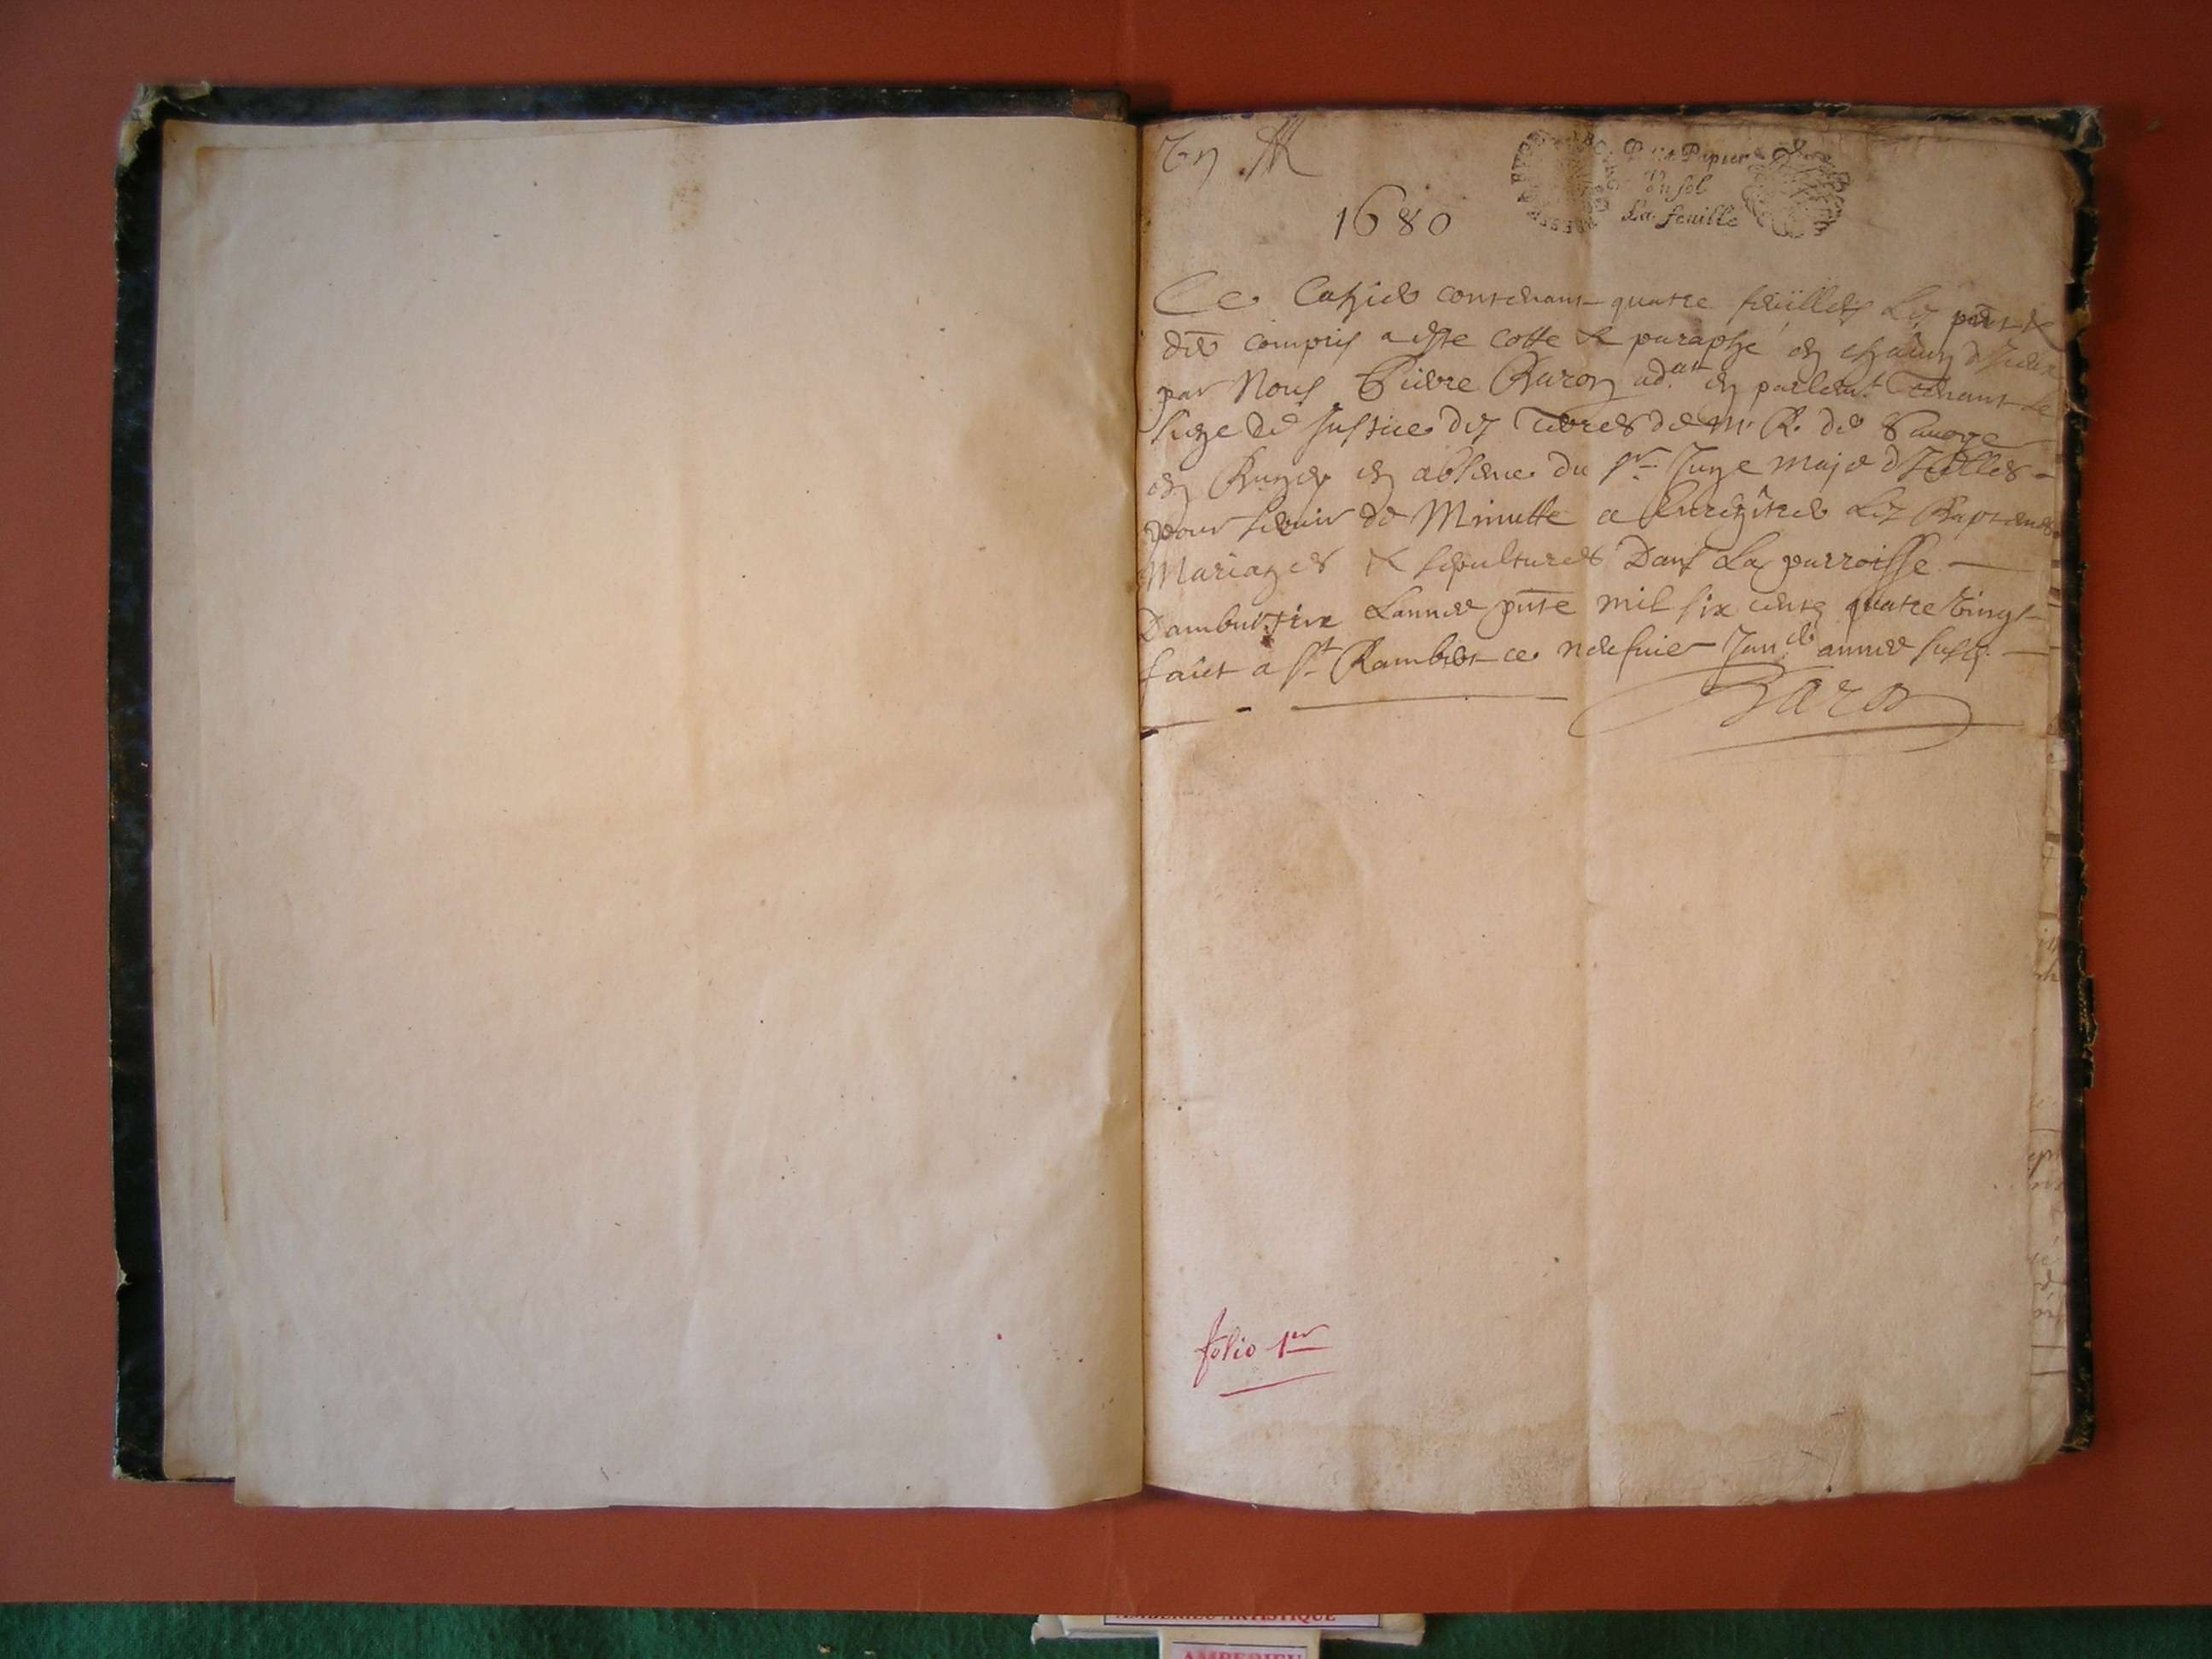 Un
1680
Petit Papier
Un sol
La feuille
Ce Cahier contenant quatre feuillets Les pnt &
der compris a este cotte & paraphé en chacun diceux
par Nous Pierre Baron adat en parlemt Tenant le
siege de Justice des Terres de M. R. de Savoye
en Bugey en absence du sr Juge maje dIcelles
pour servir de Minutte a Enregitrer Les Baptemes
Mariages & sepultures Dans La parroisse
Dambuirieux Lannee pnte mil six cents quatre vingt
faict a St Rambert ce Janer annee susd.
Baron
folio 1er
AMBERIEU ARTISTIQUE
AMBERIEU